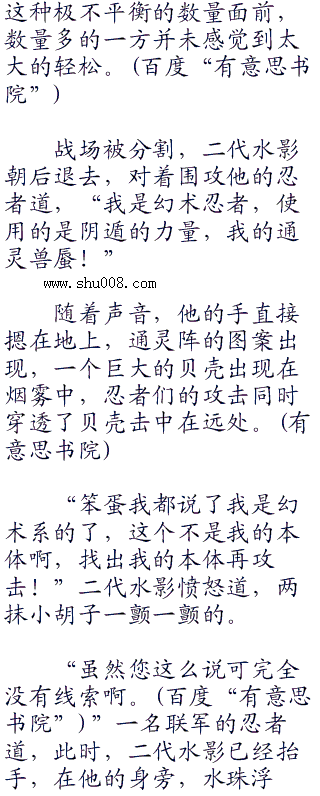 这种极不平衡的数量面前，
数量多的一方并未感觉到太
大的轻松。(百度“有意思书
院”)
战场被分割，二代水影
朝后退去，对着围攻他的忍
者道，“我是幻术忍者，使
用的是阴遁的力量，我的通
灵兽蜃！”
www.shu008.com
随着声音，他的手直接
摁在地上，通灵阵的图案出
现，一个巨大的贝壳出现在
烟雾中，忍者们的攻击同时
穿透了贝壳击中在远处。(有
意思书院)
“笨蛋我都说了我是幻
术系的了，这个不是我的本
体啊，找出我的本体再攻
击！”二代水影愤怒道，两
抹小胡子一颤一颤的。
“虽然您这么说可完全
没有线索啊。(百度“有意思
书院”)”一名联军的忍者
道，此时，二代水影已经抬
手，在他的身旁，水珠浮